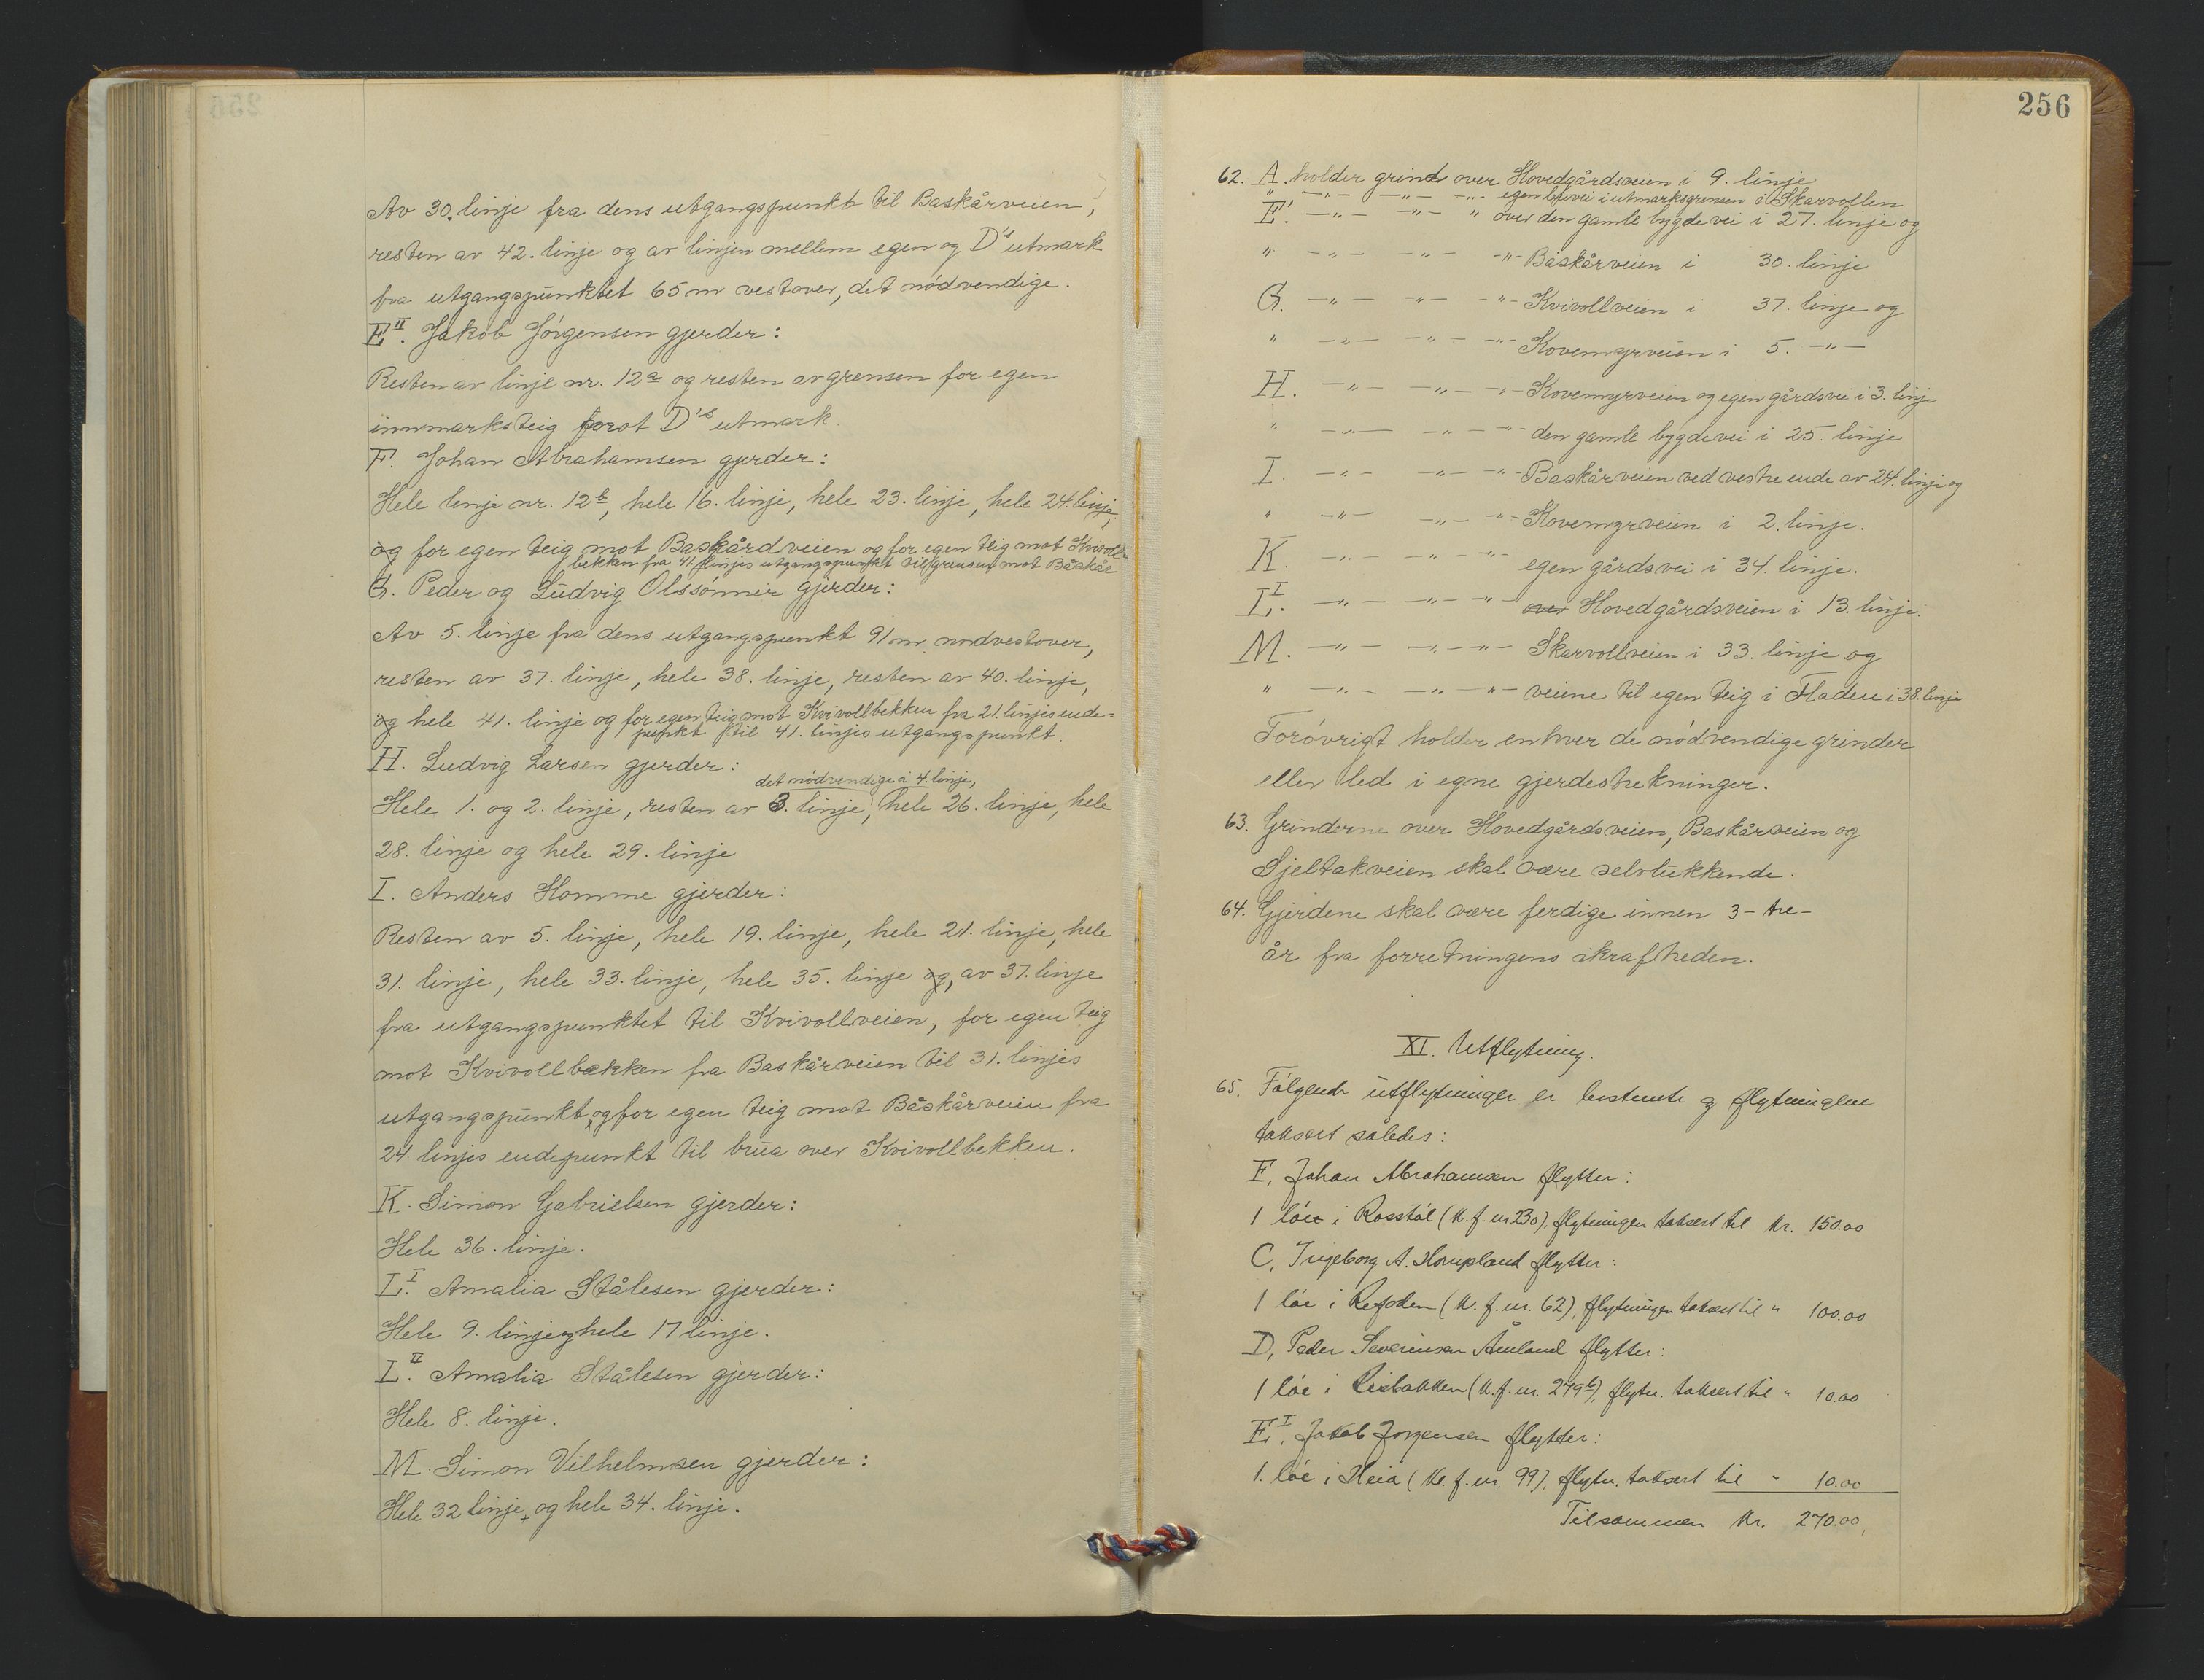 Av 30. linje fra dens utgangspunkt til Baskårveien,
resten av 42. linje og av linjen mellem egen og D's utmark
fra utgangspunktet 65 m vestover, det nödvendige.
E II. Jakob Jörgensen gjerder:
Resten av linje nr. 12a og resten av grensen for egen
innmarksteig mot D's utmark.
F. Johan Abrahamsen gjerder:
Hele linje nr. 12b, hele 16. linje, hele 23. linje, hele 24. linje,
og for egen teig mot Baskårdveien og for egen teig mot Kvivoll-
bekken fra 41. linjes utgangspunkt til grensen mot Båskår
G. Peder og Ludvig Olssönner gjerder:
Av 5. linje fra dens utgangspunkt 91 m nordvestover,
resten av 37. linje, hele 38. linje, resten av 40. linje,
og hele 41. linje og for egen teig mot Kvivollbekken fra 21. linjes ende-
punkt til 41. linjes utgangspunkt.
H. Ludvig Larsen gjerder:
det nödvendige i 4. linje,
Hele 1. og 2. linje, resten av 3. linje, hele 26. linje, hele
28. linje og hele 29. linje
I. Anders Homme gjerder:
Resten av 5. linje, hele 19. linje, hele 21. linje, hele
31. linje, hele 33. linje, hele 35. linje og, av 37. linje
fra utgangspunktet til Kvivollveien, for egen teig
mot Kvivollbekken fra Baskårveien til 31. linjes
utgangspunkt, og for egen teig mot Båskårveien fra
24. linjes endepunkt til brua over Kvivollbekken.
K. Simon Gabrielsen gjerder:
Hele 36. linje.
L I. Amalia Stålesen gjerder:
Hele 9. linje og hele 17 linje.
L II. Amalia Stålesen gjerder:
Hele 8. linje.
M. Simon Vilhelmsen gjerder:
Hele 32 linje, og hele 34. linje.
256
62. A. holder grind over Hovedgårdsveien i 9. linje
" —"— —"— —"— egen i utmarksgrensen i Skarvollen
E I. —"— —"— " over den gamle bygdevei i 27. linje og
" —"— —"— —"— Båskårveien i 30. linje
G. —"— —"— —"— Kvivollveien i 37. linje og
" —"— —"— —"— Kovemyrveien i 5. —"—
H. —"— —"— —"— Kovemyrveien og egen gårdsvei i 3. linje
" —"— —"— —"— den gamle bygdevei i 25. linje
I. —"— —"— —"— Baskårveien ved vestre ende av 24. linje og
" —"— —"— —"— Kovemyrveien i 2. linje.
K. —"— —"— —"— egen gårdsvei i 34. linje.
L I. —"— —"— —"— over Hovedgårdsveien i 13. linje.
M. —"— —"— —"— Skarvollveien i 33. linje og
" —"— —"— —"— veiene til egen teig i Fladen i 38. linje
Forövrigt holder enhver de nödvendige grinder
eller led i egne gjerdestrekninger.
63. Grinderne over Hovedgårdsveien, Baskårveien og
Sjeltakveien skal være selvlukkende.
64. Gjerdene skal være ferdige innen 3 - tre -
år fra forretningens ikraftreden.
XI. Utflytning.
65. Fölgende utflytninger er bestemte og flytningene
taksert således:
F, Johan Abrahamsen flytter:
1 löe i Rosstöl (K.f. nr 230), flytningen taksert til kr. 150.00
C, Ingeborg A. Kornpland flytter:
1 löe i (K.f. nr. 62), flytningen taksert til " 100.00
D, Peder Severinsen Åmland flytter:
1 löe i Lisbakken (K.f. nr. 279b), flytn. taksert til " 10.00
E I, Jakob Jorgensen flytter:
1. löe i Heia (K.f. nr. 99), flytn. taksert til " 10.00
Tilsammen kr. 270.00,